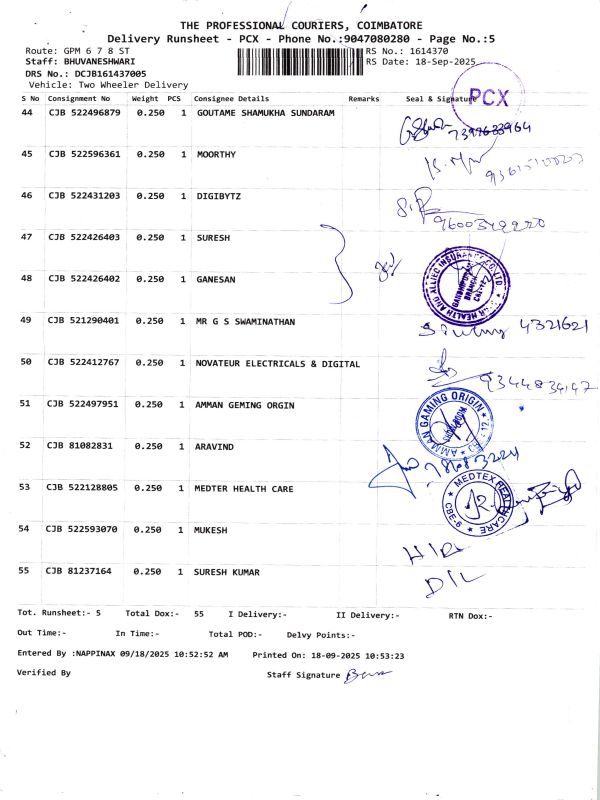 THE PROFESSIONAL COURIERS, COIMBATORE
Delivery Runsheet - PCX - Phone No.:9047080280 - Page No.:5
Route: GPM 6 7 8 ST
RS No.: 1614370
Staff: BHUVANESHWARI
RS Date: 18-Sep-2025
DRS No.: DCJB161437005
Vehicle: Two Wheeler Delivery
PCX
S No Consignment No Weight PCS Consignee Details Remarks Seal & Signature
44 CJB 522496879 0.250 1 GOUTAME SHAMUKHA SUNDARAM
7397633964
45 CJB 522596361 0.250 1 MOORTHY
46 CJB 522431203 0.250 1 DIGIBYTZ
47 CJB 522426403 0.250 1 SURESH
48 CJB 522426402 0.250 1 GANESAN
49 CJB 521290401 0.250 1 MR G S SWAMINATHAN
4321621
50 CJB 522412767 0.250 1 NOVATEUR ELECTRICALS & DIGITAL
9344834147
51 CJB 522497951 0.250 1 AMMAN GEMING ORGIN
AMMAN GAMING ORIGIN
52 CJB 81082831 0.250 1 ARAVIND
53 CJB 522128805 0.250 1 MEDTER HEALTH CARE
MEDTEX HEALTHCARE
CBE-6
54 CJB 522593070 0.250 1 MUKESH
55 CJB 81237164 0.250 1 SURESH KUMAR
D/L
Tot. Runsheet:- 5 Total Dox:- 55 I Delivery:- II Delivery:- RTN Dox:-
Out Time:- In Time:- Total POD:- Delvy Points:-
Entered By :NAPPINAX 09/18/2025 10:52:52 AM Printed On: 18-09-2025 10:53:23
Verified By Staff Signature